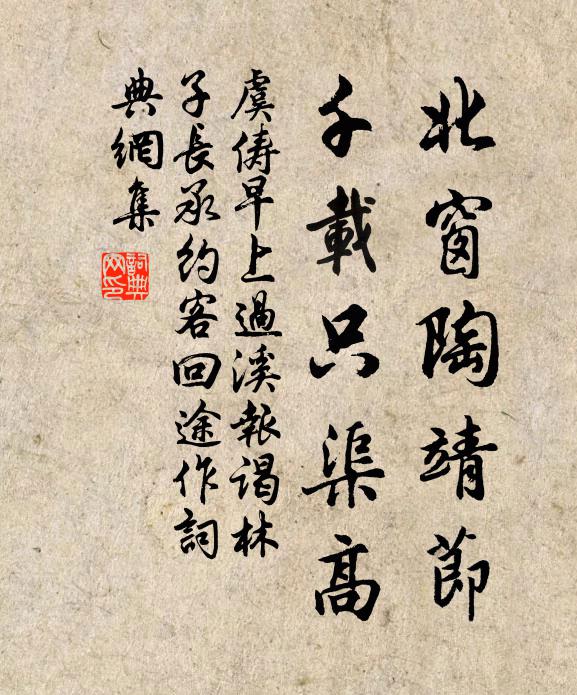 北窗陶靖節
千載只渠高
虞儔早上過溪報謁林
子長承約客回途作詞
典網集
詞典網印